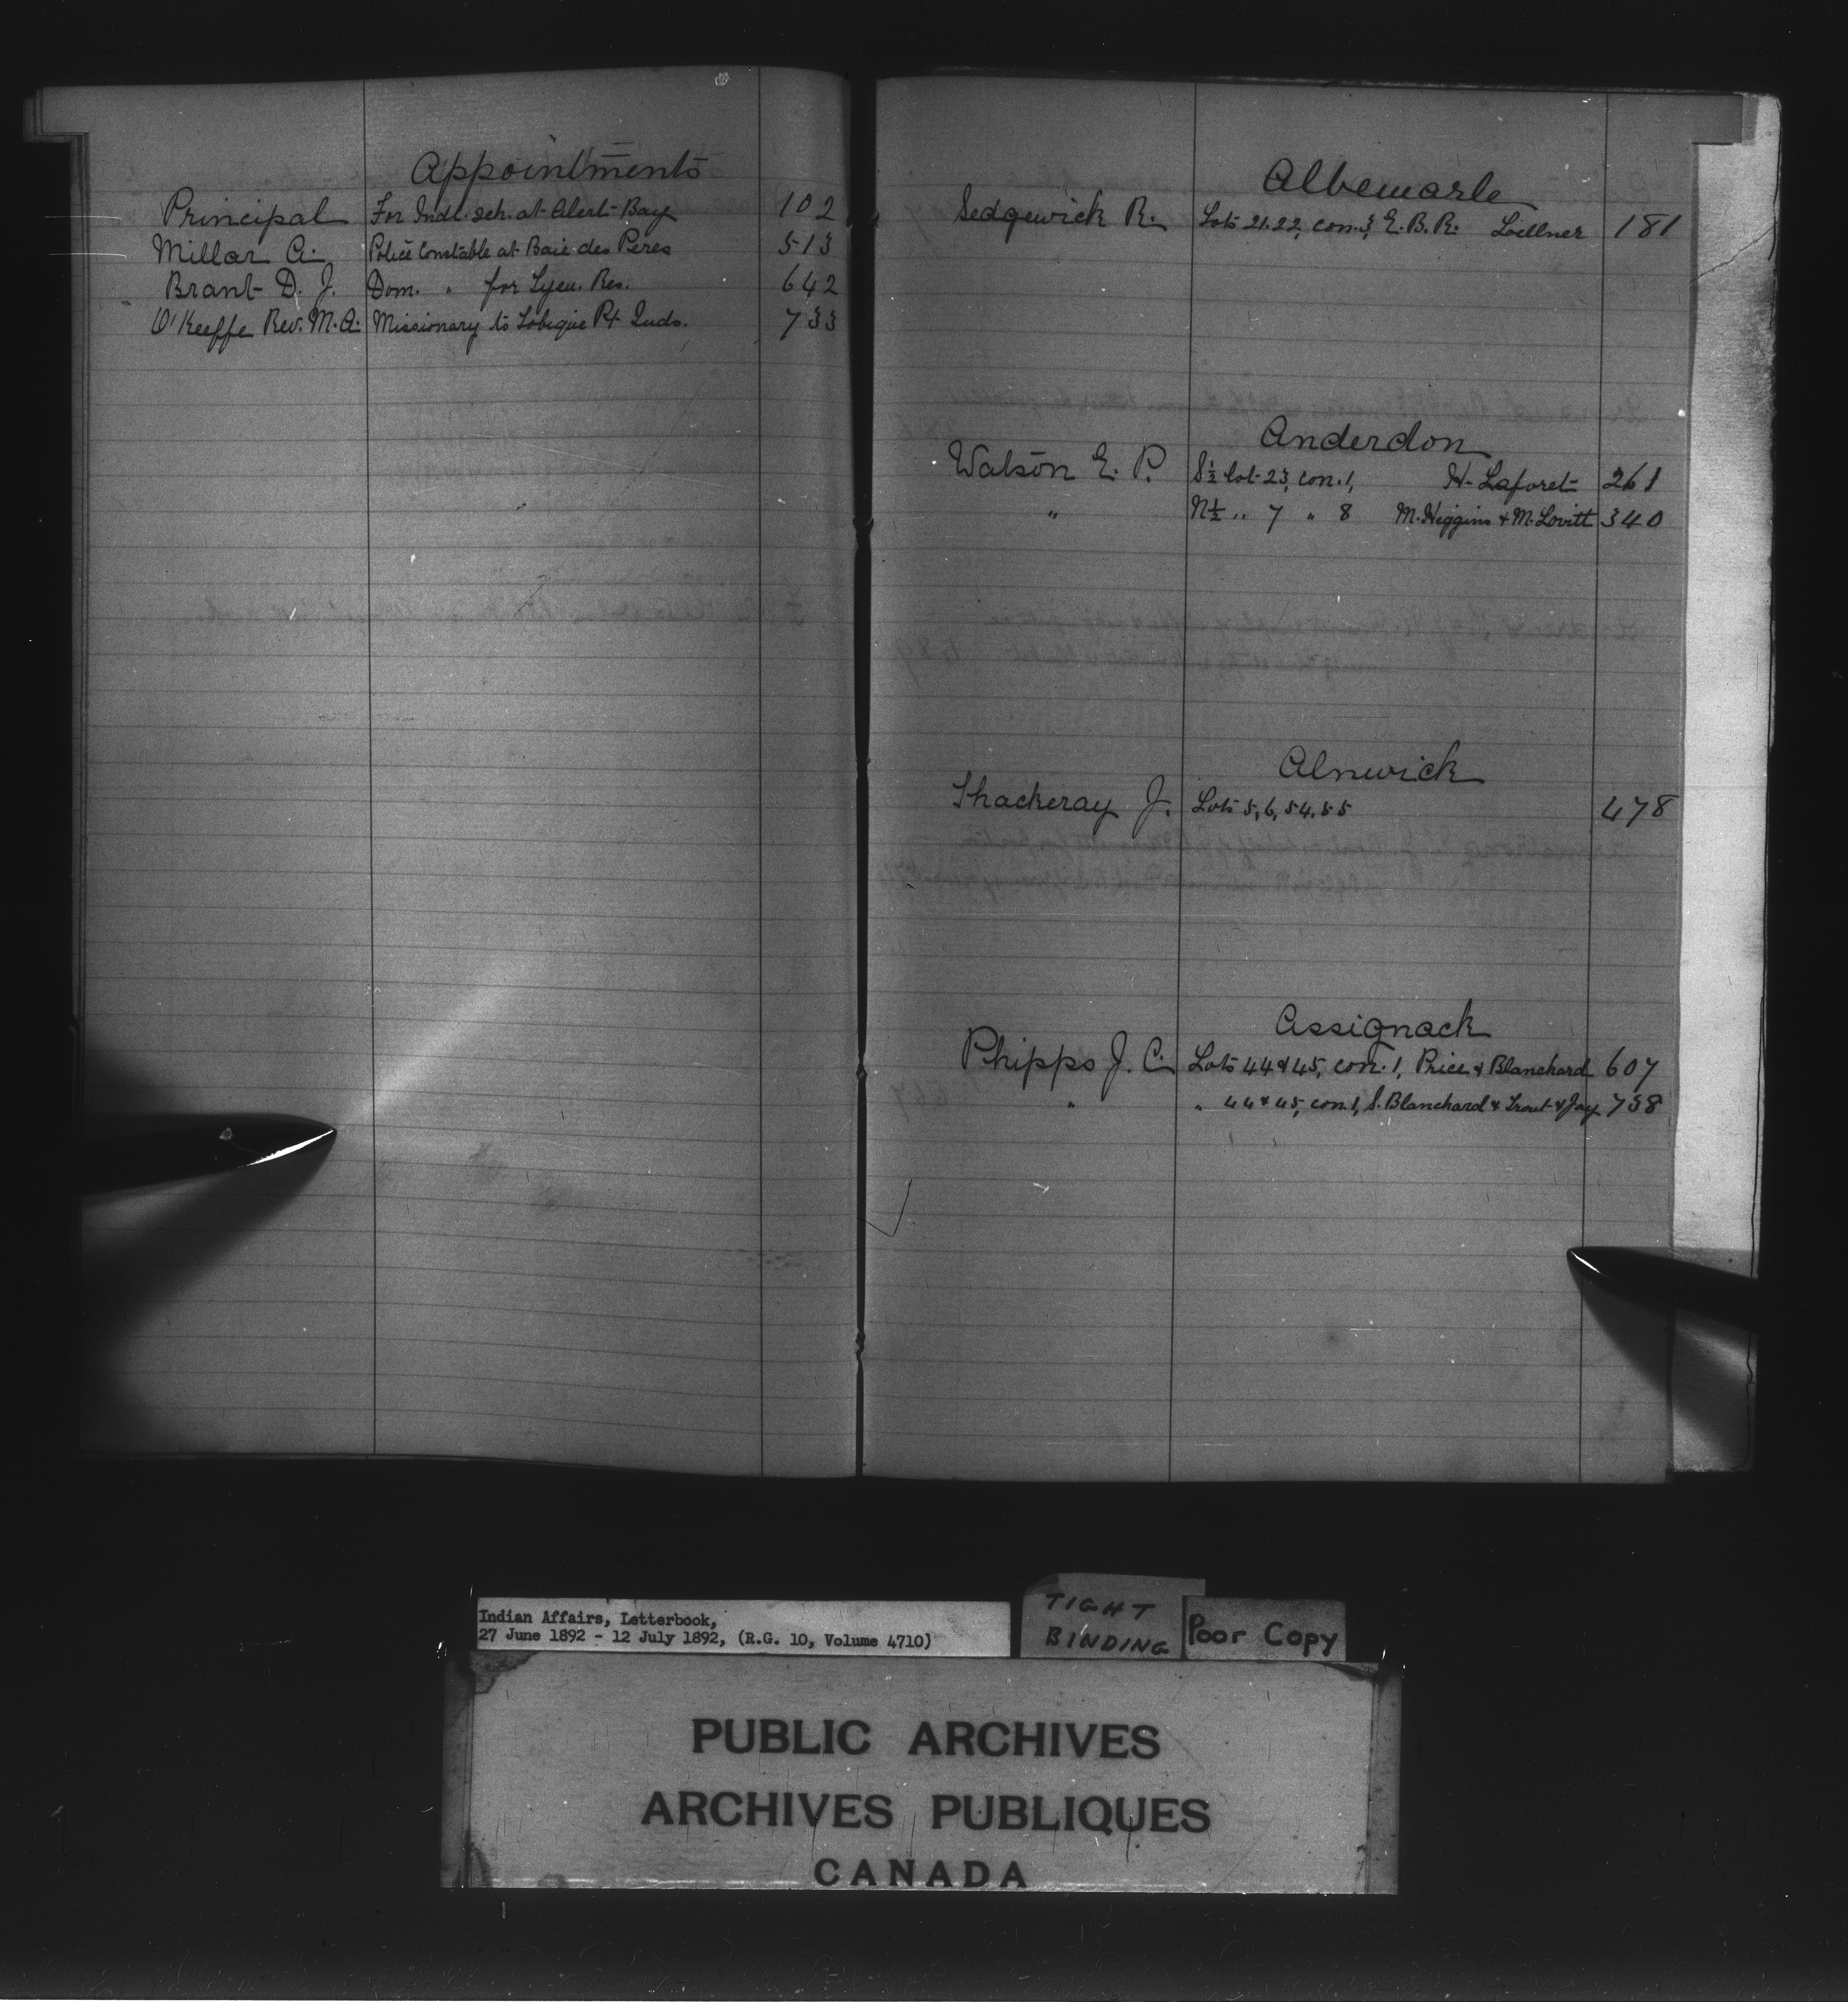 Appointments
Principal For Indl. sch. at Alert Bay 102
Millar A. Police Constable at Baie des Peres 513
Brant D. J. Dom. " for Tyen. Res. 642
O'Keeffe Rev. M. A. Missionary to Tobique Pt Inds. 733
Albemarle
Sedgewick R. Lots 21.22, con. 3, E. B. R. Loellner 181
Anderdon
Watson E. P. S½ lot 23, con. 1, H. Laforet 261
" N½ " 7 " 8 M. Higgins & M. Lovitt 340
Alnwick
Thackeray J. Lots 5, 6, 54. 55 478
Assignack
Phipps J. C. Lots 44 & 45, con. 1, Price & Blanchard 607
" " 44 & 45, con 1, S. Blanchard & Trout & Jay 738
Indian Affairs, Letterbook,
27 June 1892 - 12 July 1892, (R.G. 10, Volume 4710)
TIGHT
BINDING
Poor Copy
PUBLIC ARCHIVES
ARCHIVES PUBLIQUES
CANADA